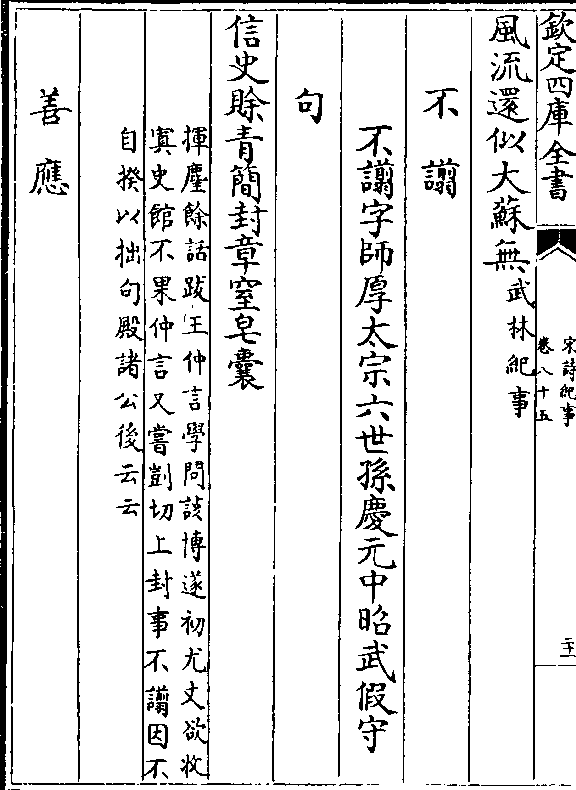 欽定四庫全書
宋詩紀事
卷八十五
二十一
風流還似大蘇無武林紀事
不譾
不譾字師厚太宗六世孫慶元中昭武假守
句
信史賖青簡封章窒皂囊
揮麈餘話跋王仲言學問該博遂初尤丈欲收
寘史館不果仲言又嘗剴切上封事不譾因不
自揆以拙句殿諸公後云云
善應